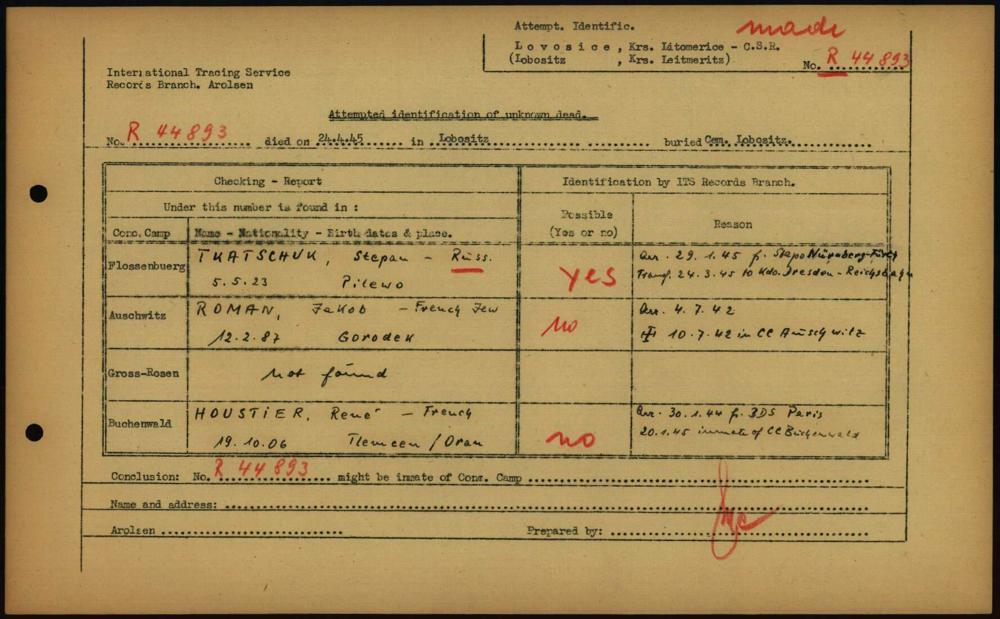 Attempt. Identific. made
Lovosice, Krs. Litomerice - C.S.R.
(Lobositz , Krs. Leitmeritz)
No. R 44893
International Tracing Service
Records Branch. Arolsen
Attempted identification of unknown dead.
No. R 44893 died on 24.4.45 in Lobositz buried Cem. Lobositz.
Checking - Report
Identification by ITS Records Branch.
Under this number is found in :
Possible
(Yes or no)
Reason
Conc. Camp
Name - Nationality - Birth dates & place.
Flossenbuerg
TKATSCHUK, Stepan - Russ.
5.5.23 Pilewo
yes
arr. 29.1.45 f. Stapo Nürnberg-Fürth
Transf. 24.3.45 to Kdo. Dresden - Reichsbahn
Auschwitz
ROMAN, Jakob - French Jew
12.2.87 Gorodek
no
arr. 4.7.42
10.7.42 in CC Auschwitz
Gross-Rosen
not found
Buchenwald
HOUSTIER, René - French
19.10.06 Tlemcen / Oran
no
arr. 30.1.44 f. BDS Paris
20.1.45 inmate of CC Buchenwald
Conclusion: No. R 44893 might be inmate of Conc. Camp
Name and address:
Arolsen
Prepared by: